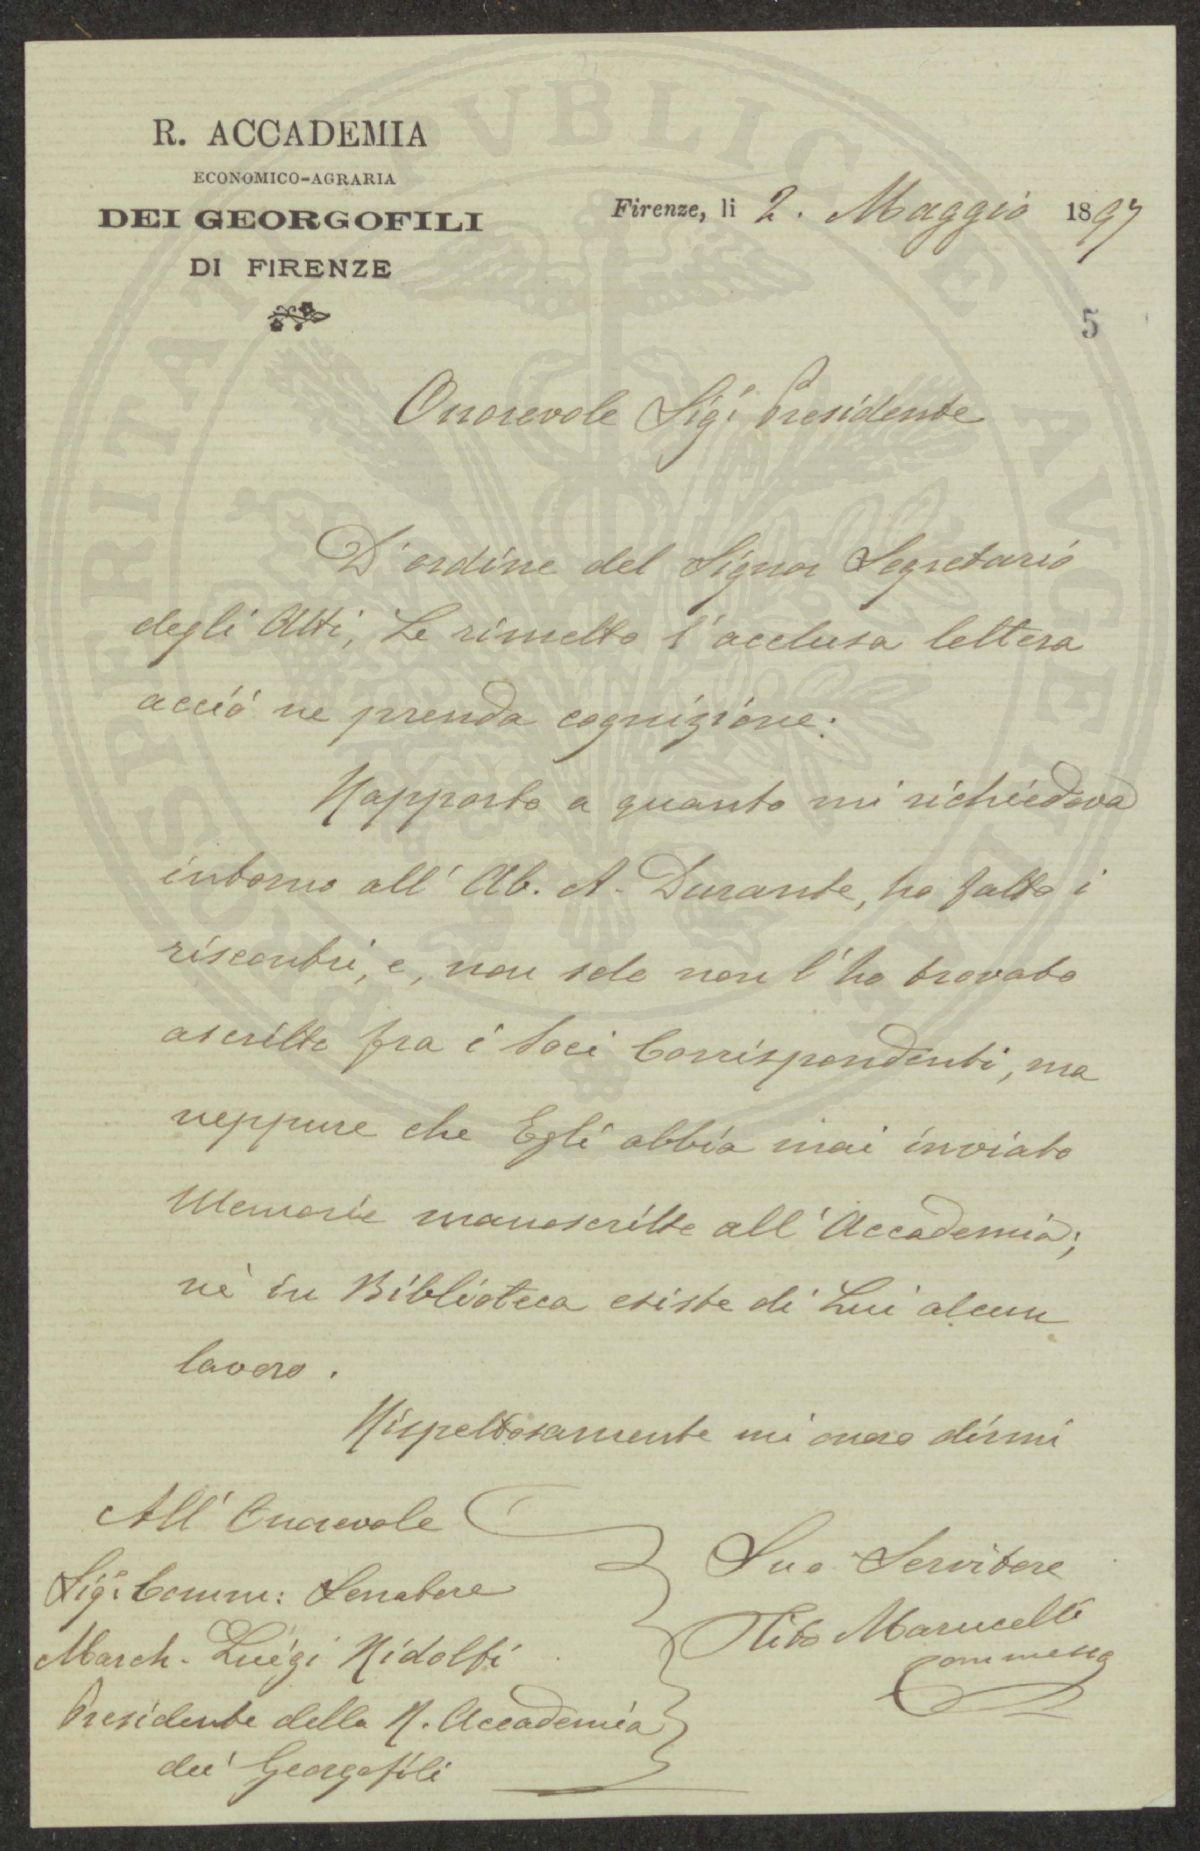 R. ACCADEMIA
ECONOMICO-AGRARIA
DEI GEORGOFILI
DI FIRENZE
Firenze, li 2. Maggio 1897
5
Onorevole Sigr Presidente
D'ordine del Signor Segretario
degli Atti, Le rimetto l'acclusa lettera
acciò ne prenda cognizione.
Rapporto a quanto mi richiedeva
intorno all'Ab. A. Durante, ho fatto i
riscontri, e, non solo non l'ho trovato
ascritto fra i Soci Corrispondenti, ma
neppure che Egli abbia mai inviato
Memorie manoscritte all'Accademia;
nè in Biblioteca esiste di Lui alcun
lavoro.
Rispettosamente mi onoro dirmi
All'Onorevole
Sigr Comm: Senatore
March. Luigi Ridolfi
Presidente della R. Accademia
dei Georgofili
Suo Servitore
Tito Marucelli
Commesso
PROSPERITATI PVBLICAE AVGENDAE